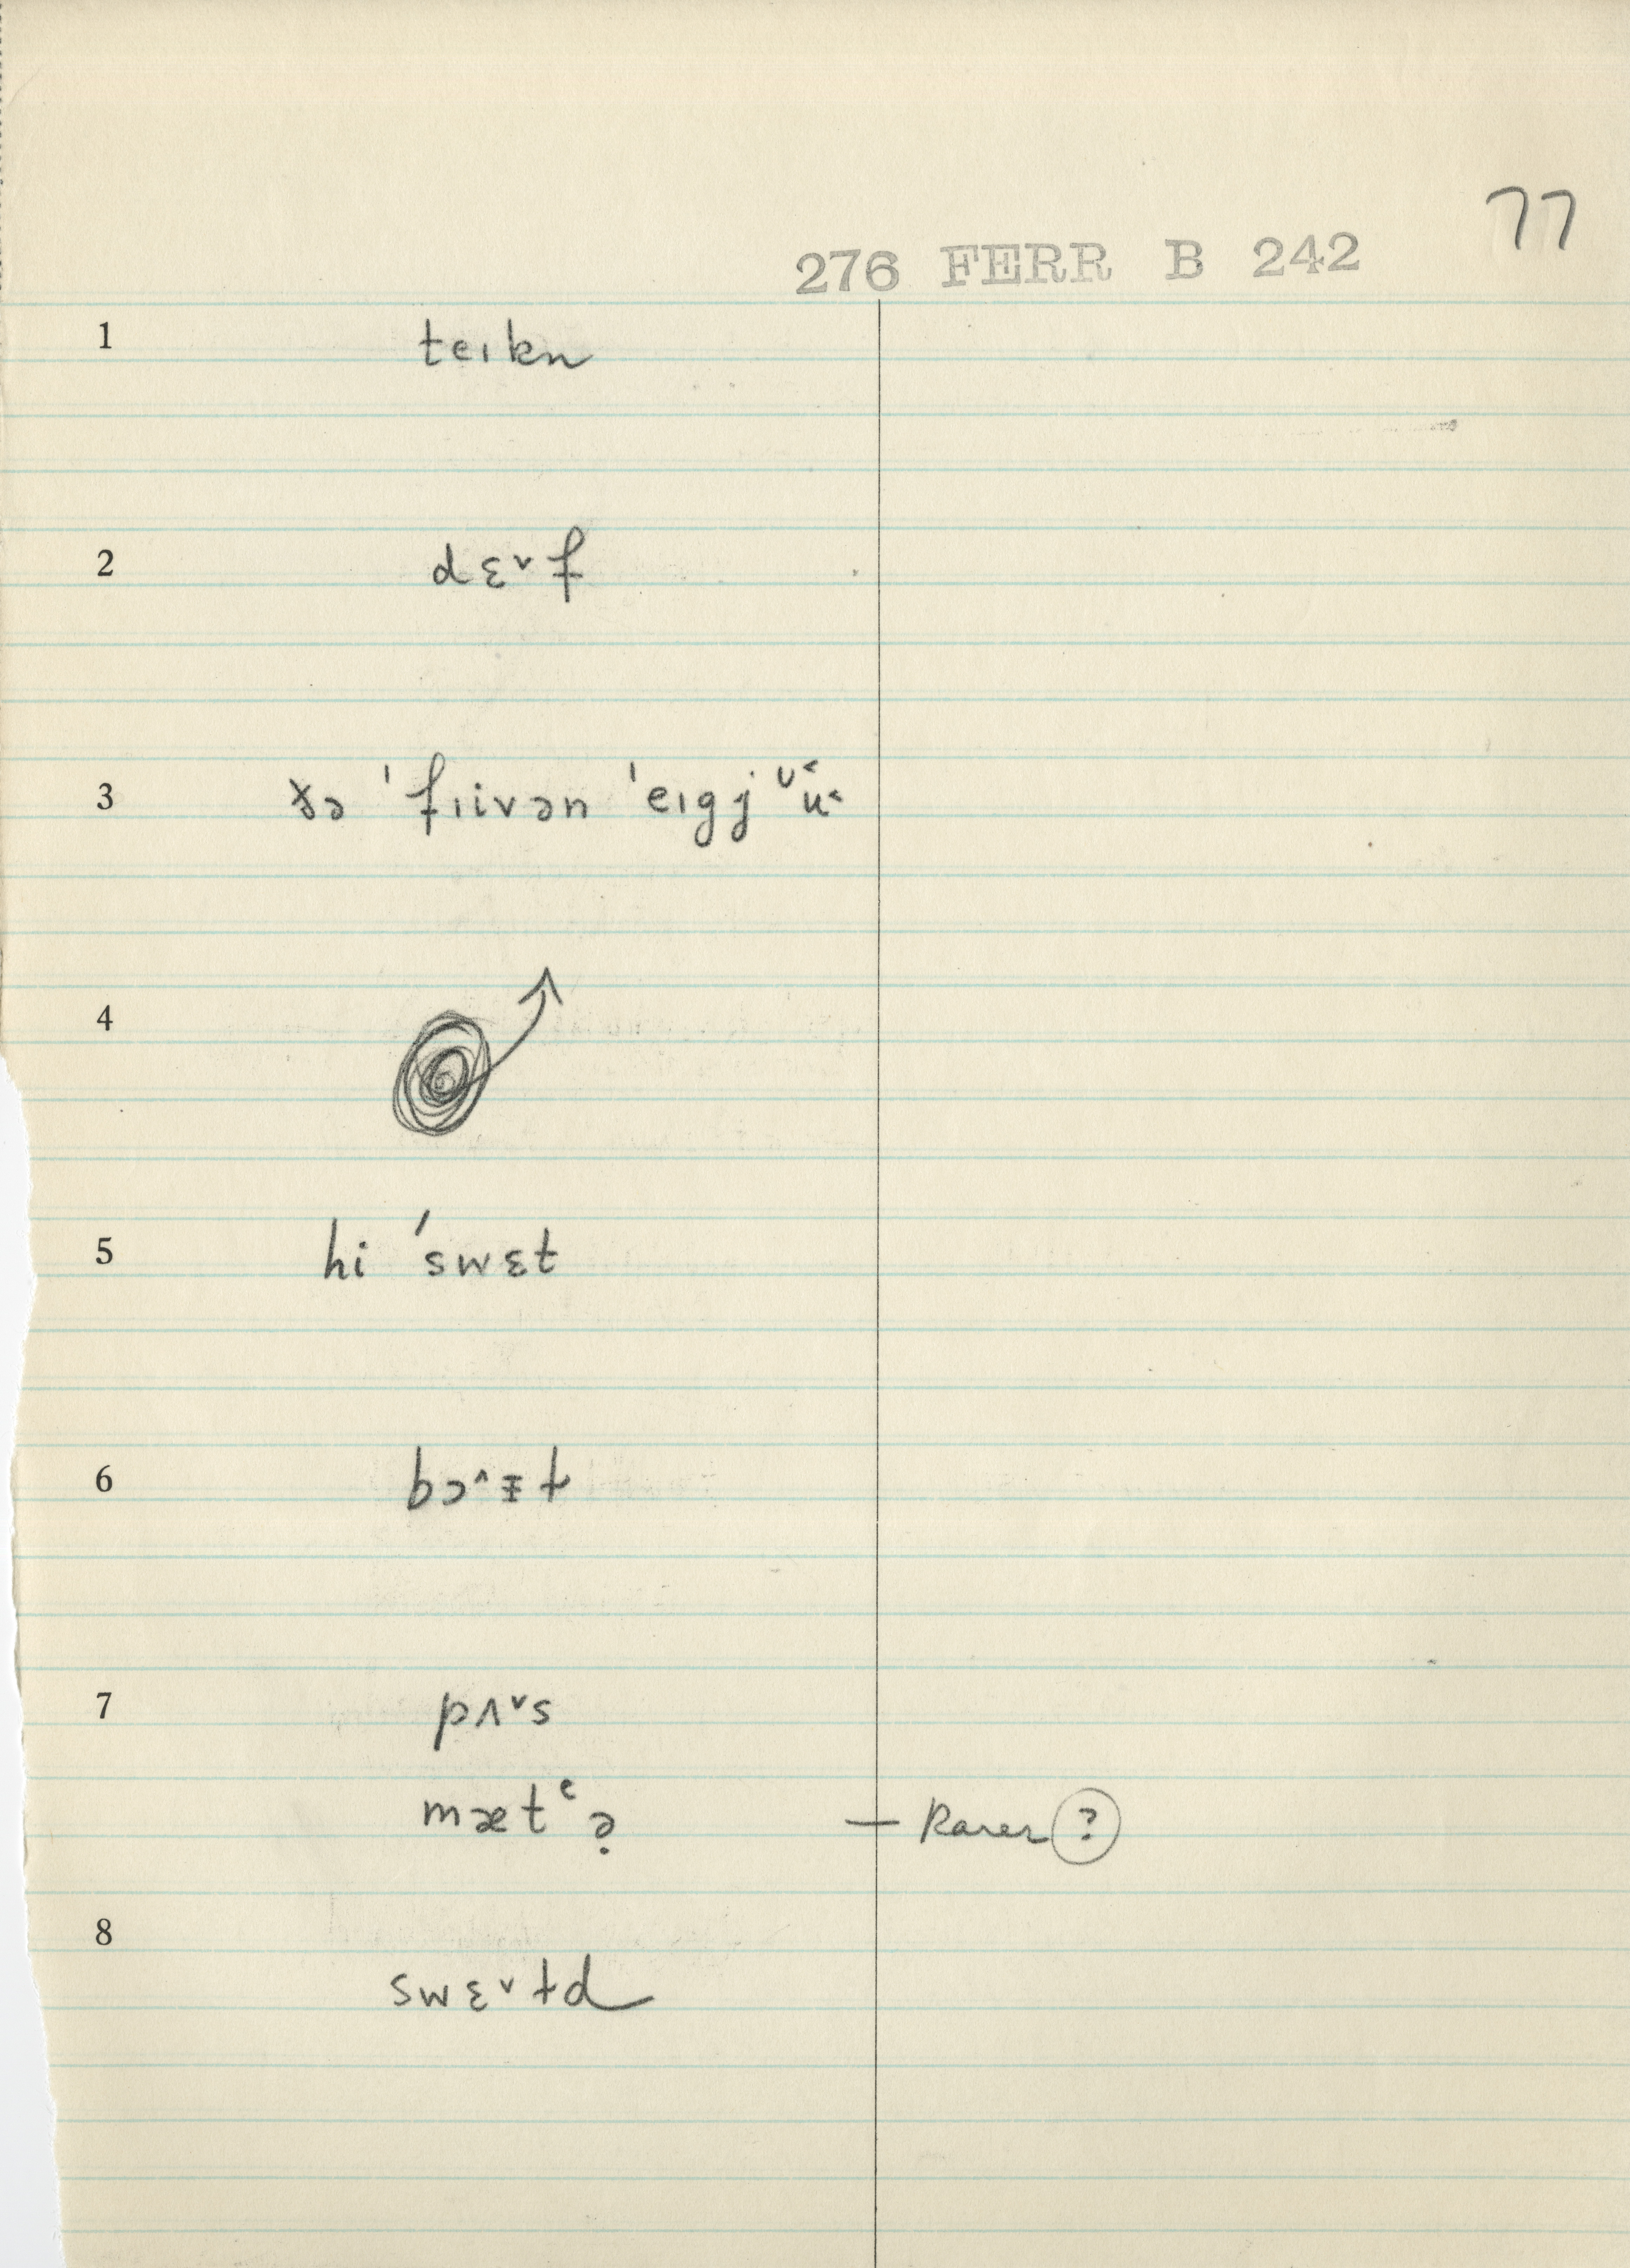 77
276 FERR B 242
1 teɪkn
2 dɛ˅f
3 ðə 'fɪivən 'eɪgj ᶷ˂ü˂
4
5 hi 'swɛt
6 bɔ˄ɪ̵ɫ
7 pʌ˅s
mætᶜə̣ — Rarer ?
8 swɛ˅td